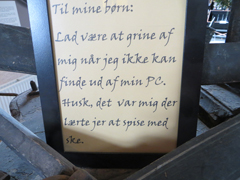 Til mine børn:
Lad være at grine af
mig når jeg ikke kan
finde ud af min PC.
Husk, det var mig der
lærte jer at spise med
ske.